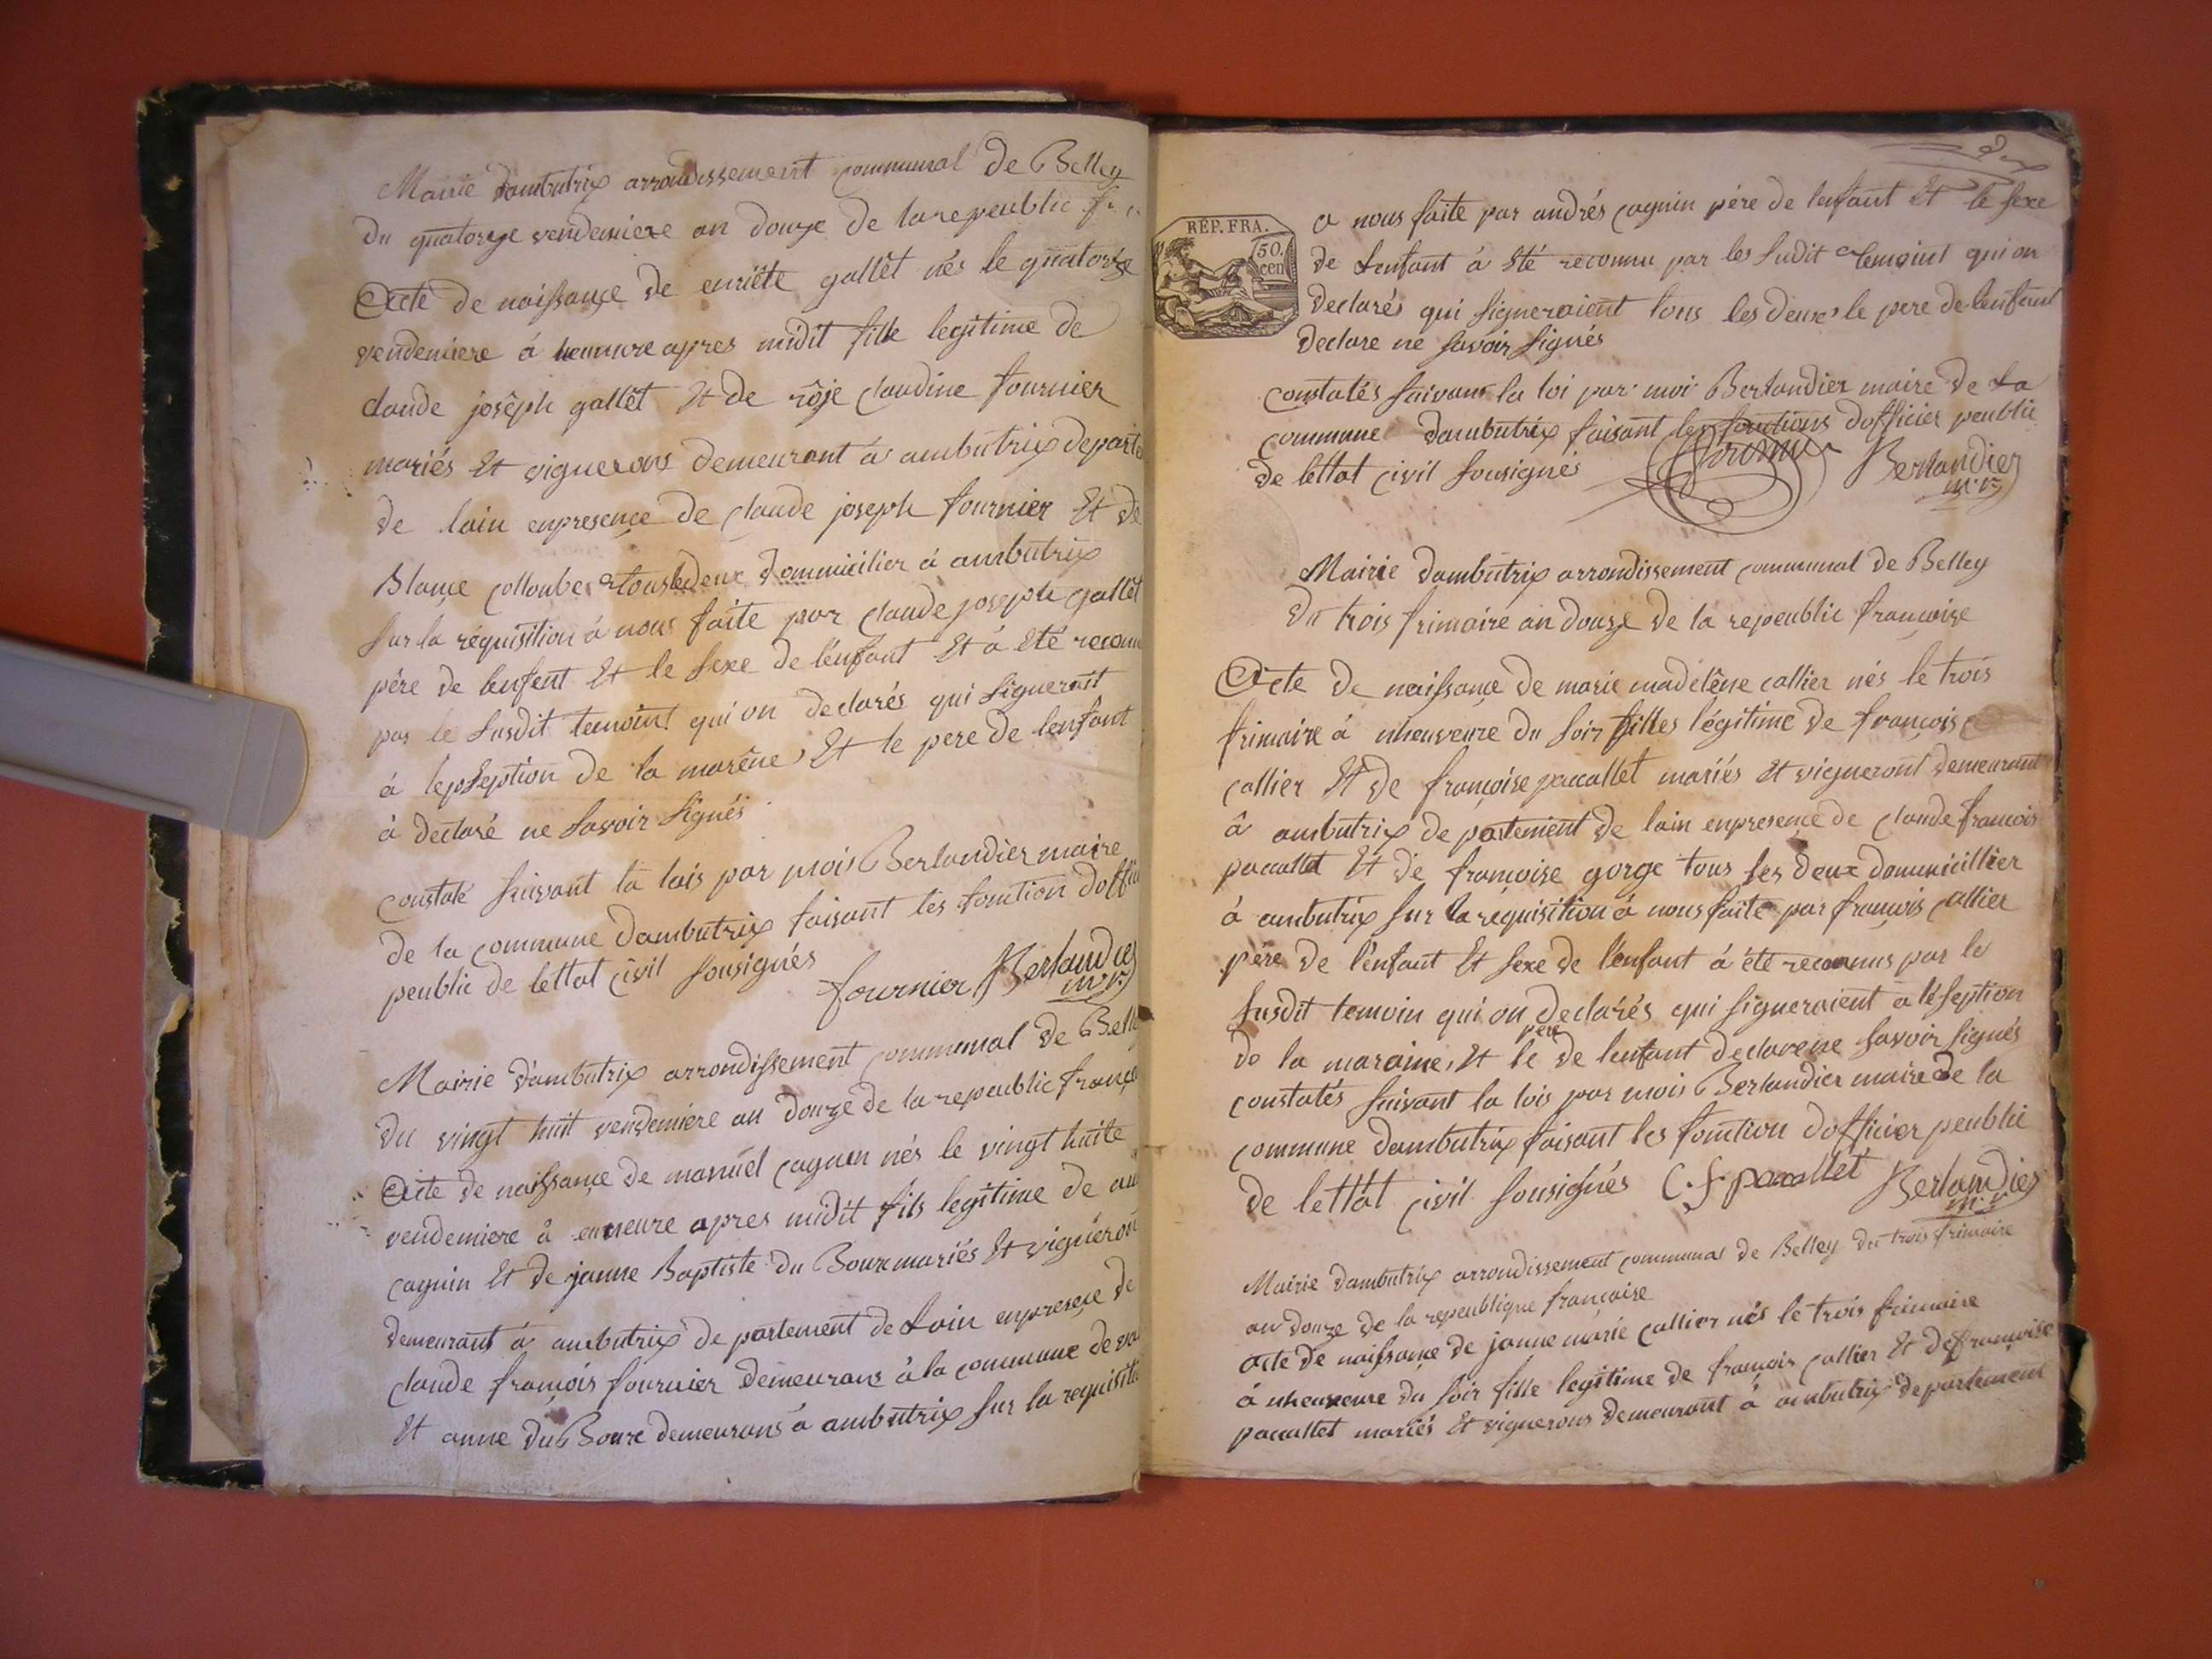 Mairie dambutrix arrondissement communal de Belley
du quatorze vendemiere an douze de la repeublic
Acte de naissançe de enriête gallêt nés le quatorze
vendemiere á apres midit fille legitime de
claude joséph gallêt Et de rôje claudine fournier
mariés Et vignerons demeurant à ambutrix departe
de lain enpresençe de claude joseph fournier Et de
Blançe colloube tous les deux dommicilier á ambutrix
sur la réquisition á nous faite par claude joseph gallêt
pére de lenfent Et le sexe de lénfant Et á Eté reconu
par le susdit temoint qui on declarés qui signeront
á lepseption de la marêne, Et le pere de lenfant
á declaré ne savoir signés
constaté suivant la lois par mois Berlandier maire
de la commune dambutrix faisant les fontion doffici
peublic de lettat civil sousignés
fournier Berlandier
mre
Mairie dambutrix arrondissement communal de Belle
du vingt huit vendemiere an douze de la repeublic françe
Acte de naissançe de manuél cagnin nés le vingt huite
vendemiere á apres midit fils legitime de an
cagnin Et de janne Baptiste du Bourx mariés Et vigneron
demeurant á ambutrix de partement de Lain enpreseçe de
claude françois fournier demeurans á la commune de va
Et anne du Boure demeurans á ambutrix sur la requisiti
deux
RÉP. FRA.
50.
cen
a nous faite par andrés cagnin pére de lenfant Et le sexe
de Lenfant á Eté reconnu par les sudit temoint qui on
declarés qui signeraient tous les deux, le pere de lenfant
declare ne savoir signés
constatés suivant la loi par moi Berlandier maire de La
commune dambutrix faisant les fontions dofficier peublic
de lettat civil sousignés fournier Berlandier
mre
Mairie dambutrix arrondissement communal de Belley
du trois frimaire an douze de la repeublic françoise
Acte de naissançe de marie madélêne callier nés le trois
frimaire á du soir filles légitime de françois
callier Et de françoise paccallet mariés Et vigneront demeurant
â ambutrix de partement de lain enpresençe de claude françois
paccallet Et de françoise gorge tous les deux dommicillier
á ambutrix sur la requisition á nous faite par françois callier
pére de l'énfant Et sexe de l'énfant á été reconnus par le
susdit temoin qui on declarés qui signeraient a léseption
de la maraine, Et le pére de lenfant declare ne savoir signés
constatés suivant la lois par mois Berlandier maire de la
commune dambutrix faisant les fontion dofficier peublic
de lettât civil sousignés C. f. paccallet Berlandier
mre
Mairie dambutrix arrondissement communal de Belley du trois frimaire
an douze de la repeublique françoise
acte de naissançe de janne marie callier nés le trois frimaire
á du soir fille legitime de françois callier Et de françoise
paccallet mariés Et vignerons demeurant á ambutrix departement